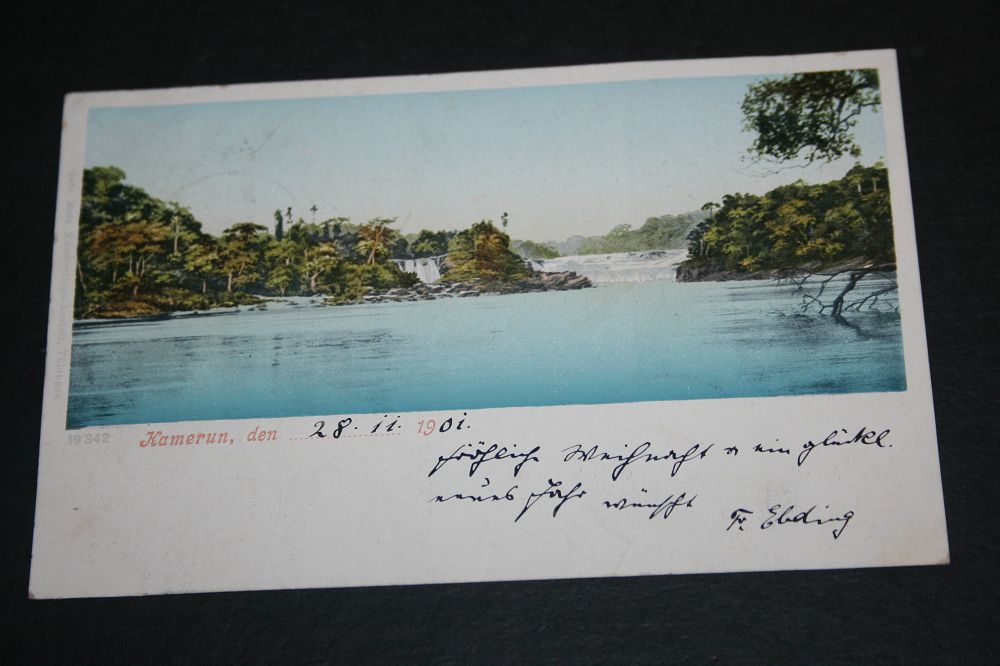 19342
Kamerun, den 28. 11. 1901.
fröhliche Weihnacht u ein glückl.
neues Jahr wünscht
Fr. Ebding